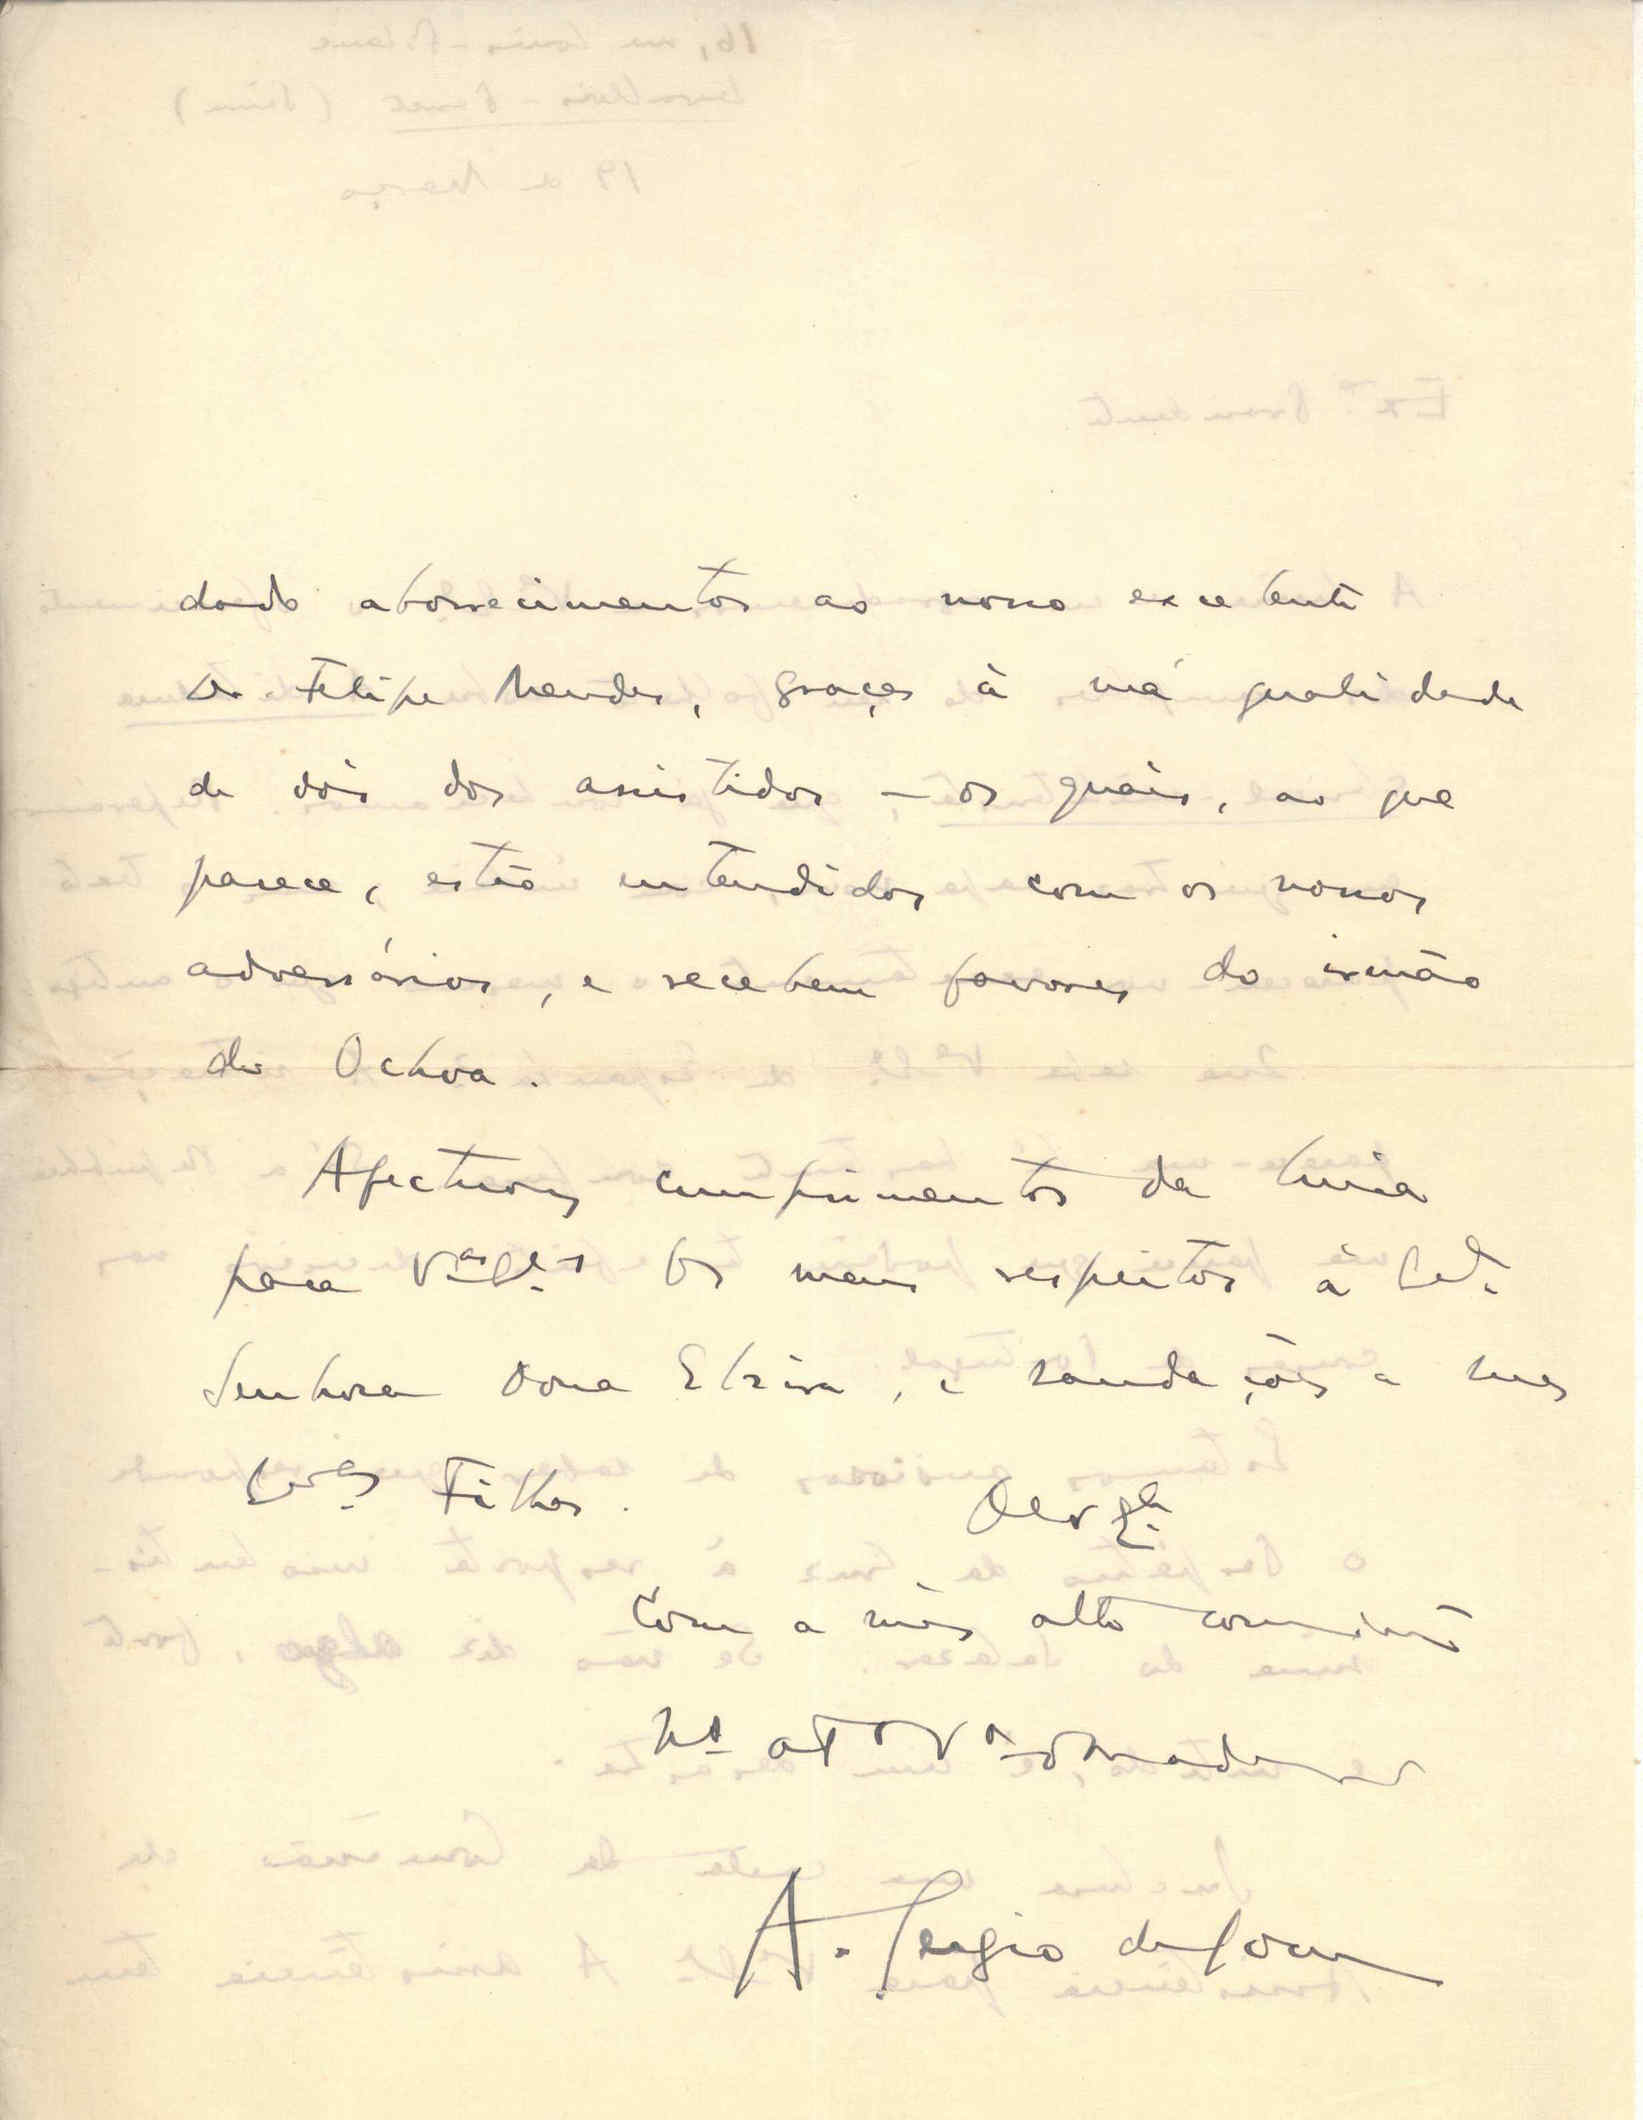 dado aborrecimentos ao nosso excelente
Dr Felipe Mendes, graças à má qualidade
de dois dos assistidos — os quais, ao que
parece, estão entendidos com os nossos
adversários, e recebem favores do irmão
do Ochoa.
Afectuosos cumprimentos da Luisa
para V.as Ex.as Os meus respeitos à
Senhora Dona Elzira, e saudações a seus
Ex.mos Filhos.
De V. Ex.a
Com a mais alta consideração
M.to At.to V.or Obrigado
A. Sergio de Sousa